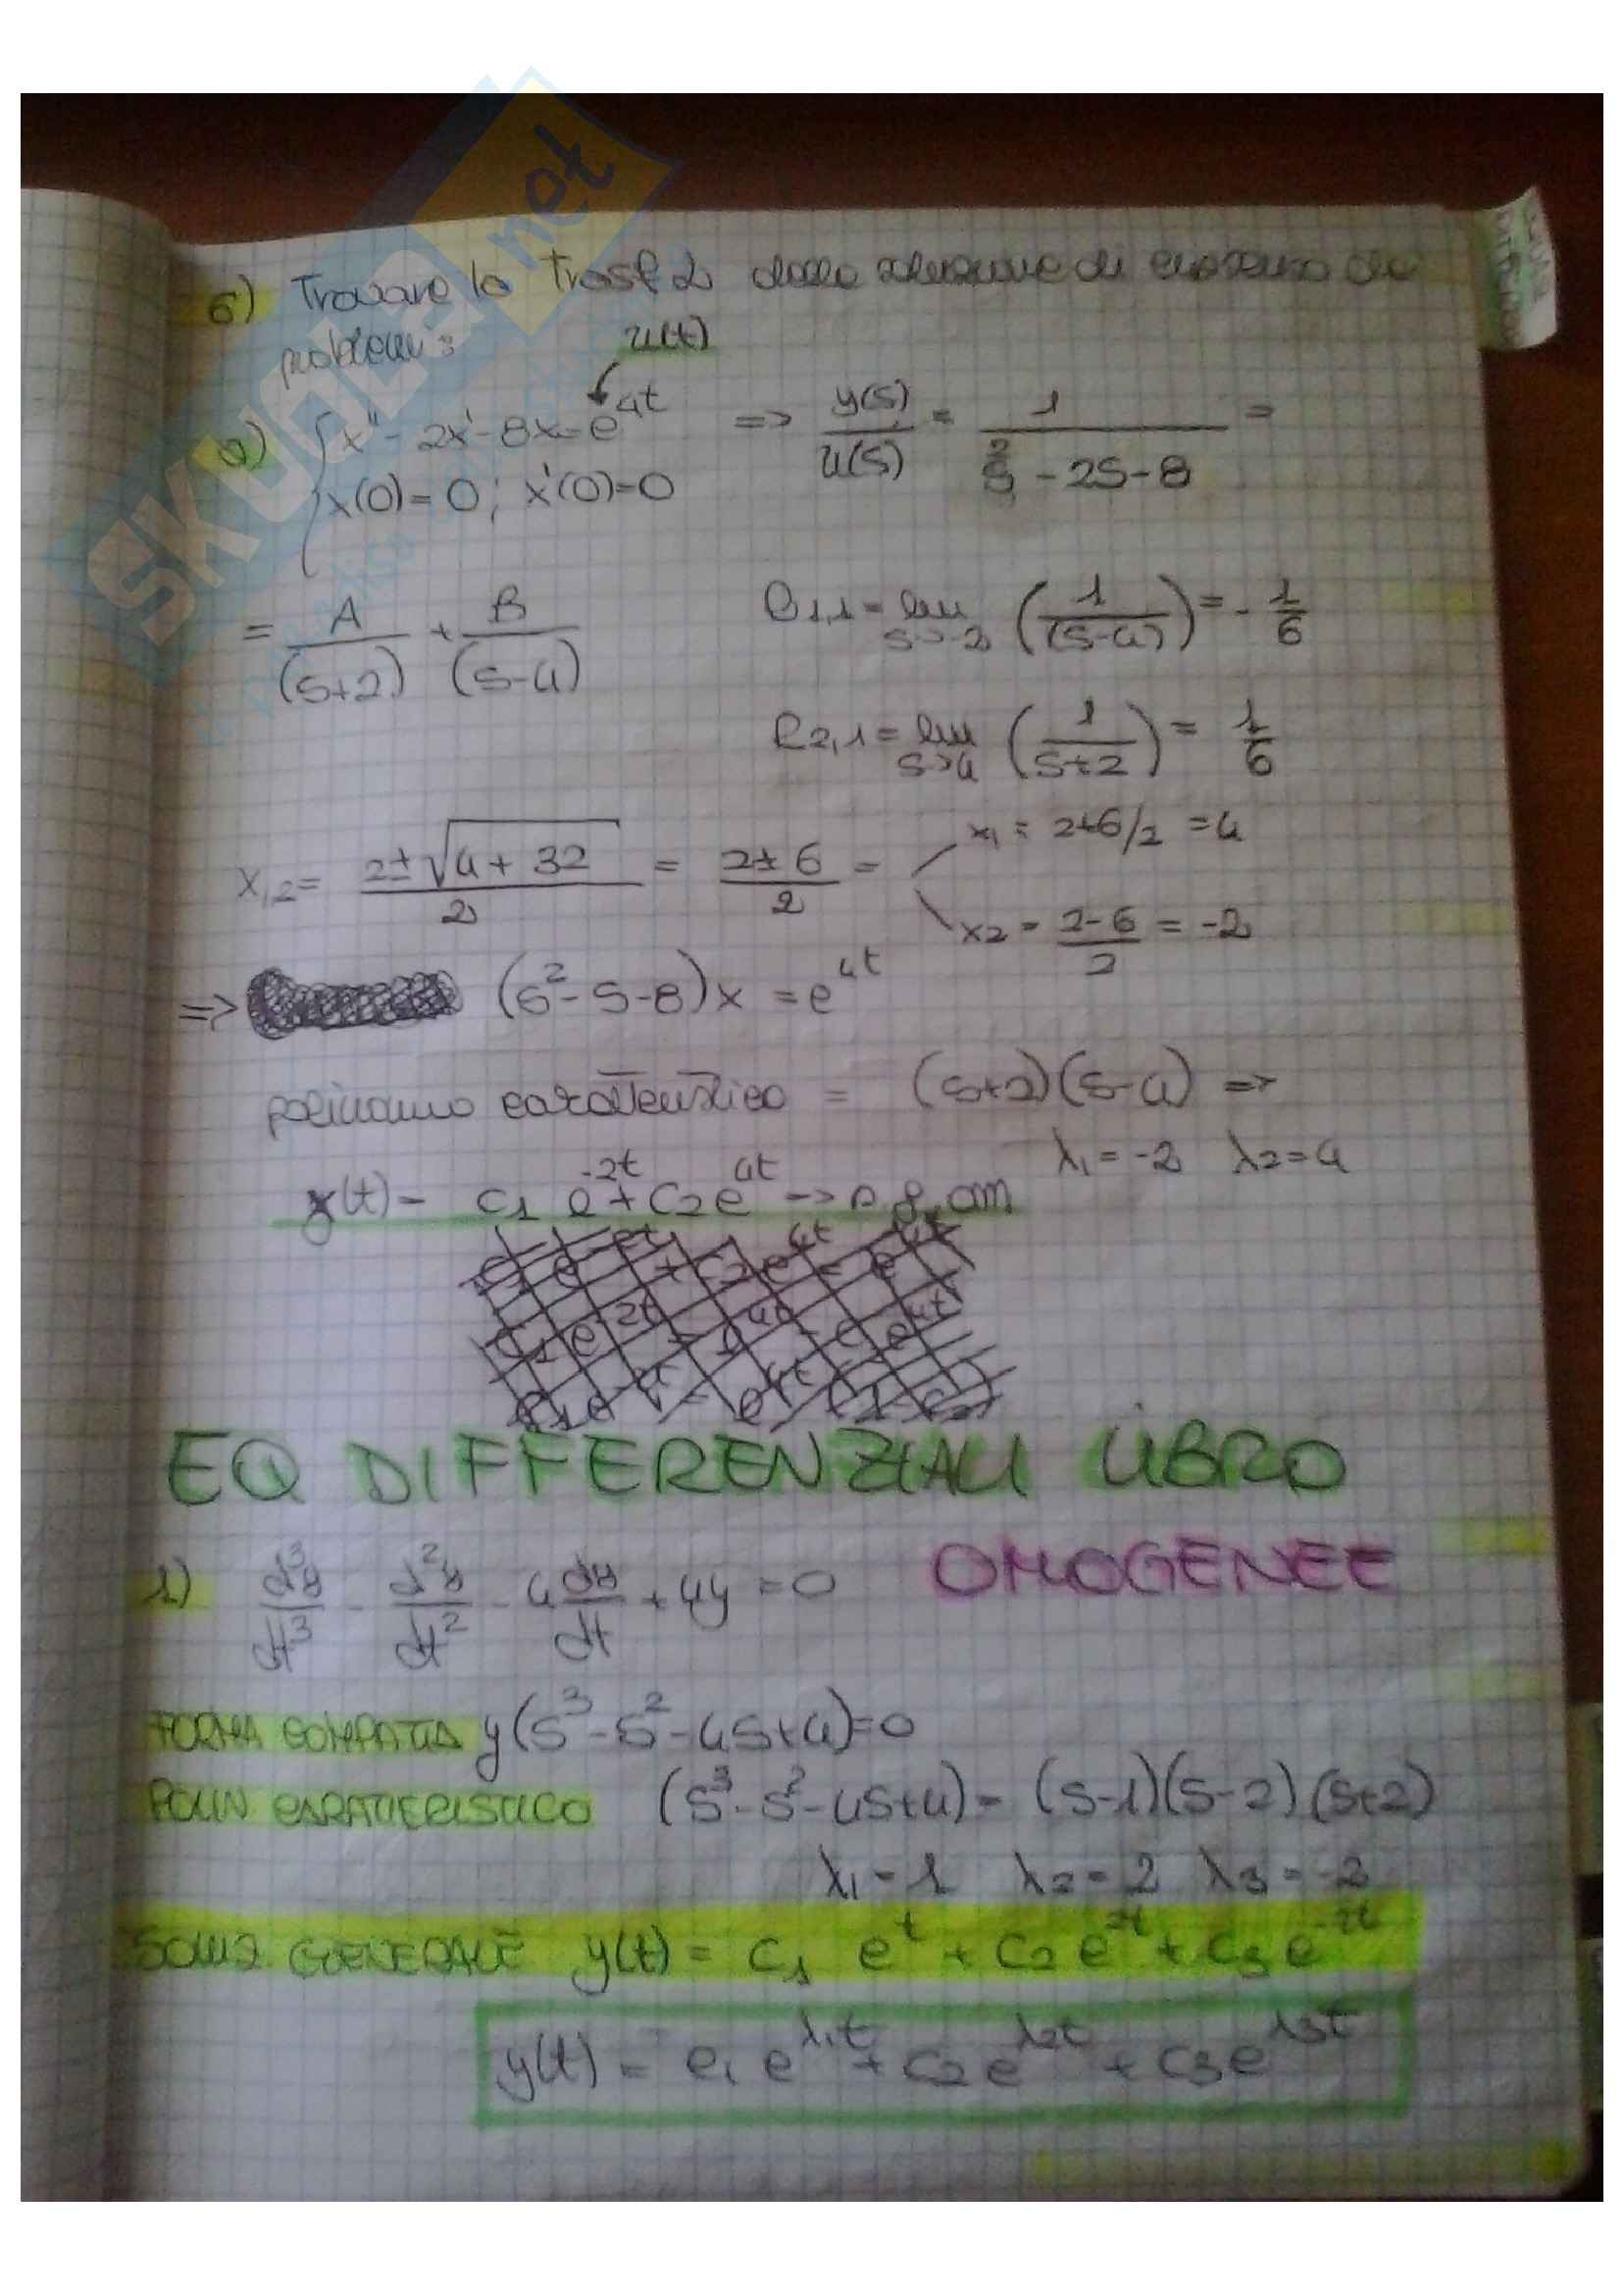 6) Trovare la Trasf L della soluzione di ciascuno dei
problemi:
u(t)
a) x'' - 2x' - 8x = e^{4t} => y(s)/u(s) = 1/(s² - 2s - 8) =
x(0) = 0; x'(0) = 0
= A/(s+2) + B/(s-4)
R1,1 = lim s->-2 (1/(s-4)) = -1/6
R2,1 = lim s->4 (1/(s+2)) = 1/6
x1,2 = (2 ± √(4 + 32))/2 = (2 ± 6)/2 =
x1 = 2+6/2 = 4
x2 = (2-6)/2 = -2
=> (s² - s - 8)x = e^{4t}
polinomio caratteristico = (s+2)(s-4) =>
λ1 = -2 λ2 = 4
y(t) = c1 e^{-2t} + c2 e^{4t} -> om
EQ DIFFERENZIALI LIBRO
OMOGENEE
1) d³y/dt³ - d²y/dt² - 4 dy/dt + 4y = 0
FORMA COMPATTA y(s³ - s² - 4s + 4) = 0
POLIN CARATTERISTICO (s³ - s² - 4s + 4) = (s-1)(s-2)(s+2)
λ1 = 1 λ2 = 2 λ3 = -2
SOLUZ. GENERALE y(t) = c1 e^t + c2 e^{2t} + c3 e^{-2t}
y(t) = c1 e^{λ1t} + c2 e^{λ2t} + c3 e^{λ3t}
SKUOLA.net